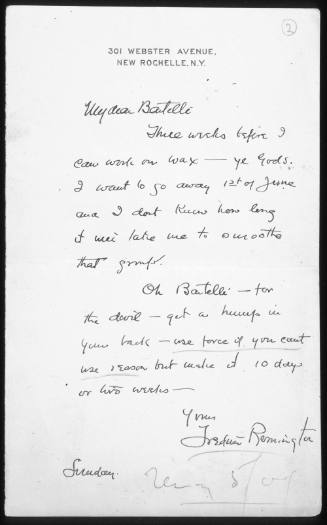 2
301 WEBSTER AVENUE,
NEW ROCHELLE, N.Y.
My dear Bertelli
Three weeks before I
can work on wax — ye Gods.
I want to go away 1st of June
and I dont know how long
it will take me to smoothe
that group.
Oh Bertelli — for
the devil — get a hump in
your back — use force if you cant
use reason but make it 10 days
or two weeks —
Yours
Frederic Remington
Sunday.